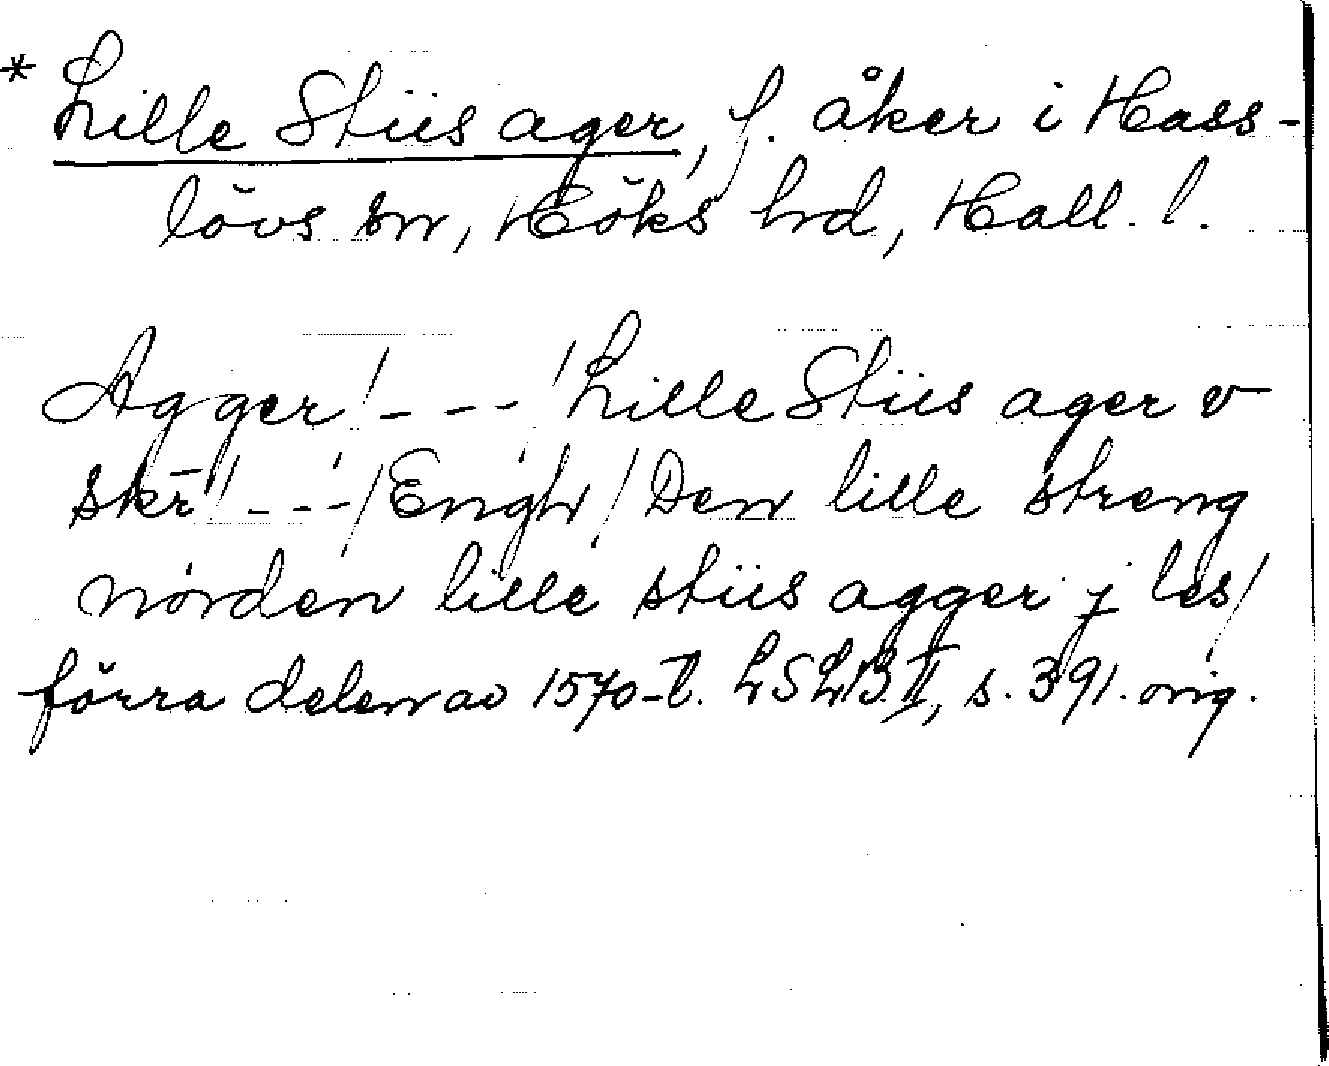 * Lille Stiis ager, f. åker i Hass-
lövs sn, Höks hd, Hall. l.
Agger / - - - / Lille Stiis ager v
skr̄ / - - - / Engh / Den lille streng
norden lille stiis agger j les /
förra delen av 1570-t. LSLB II, s. 391. orig.